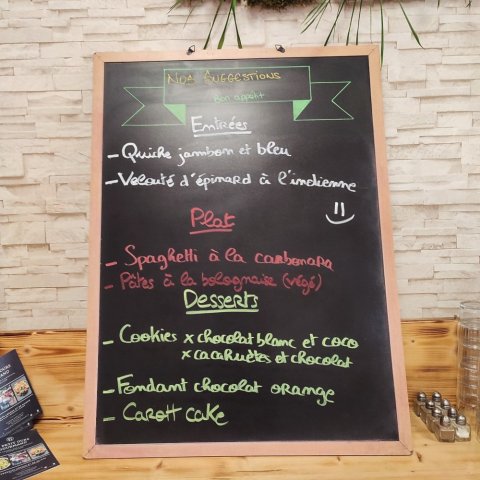 Nos Suggestions
Bon appétit
Entrées
- Quiche jambon et bleu
- Velouté d'épinard à l'indienne
Plat
- Spaghetti à la carbonara
- Pâtes à la bolognaise (végé)
Desserts
- Cookies x chocolat blanc et coco
x cacahuètes et chocolat
- Fondant chocolat orange
- Carott cake